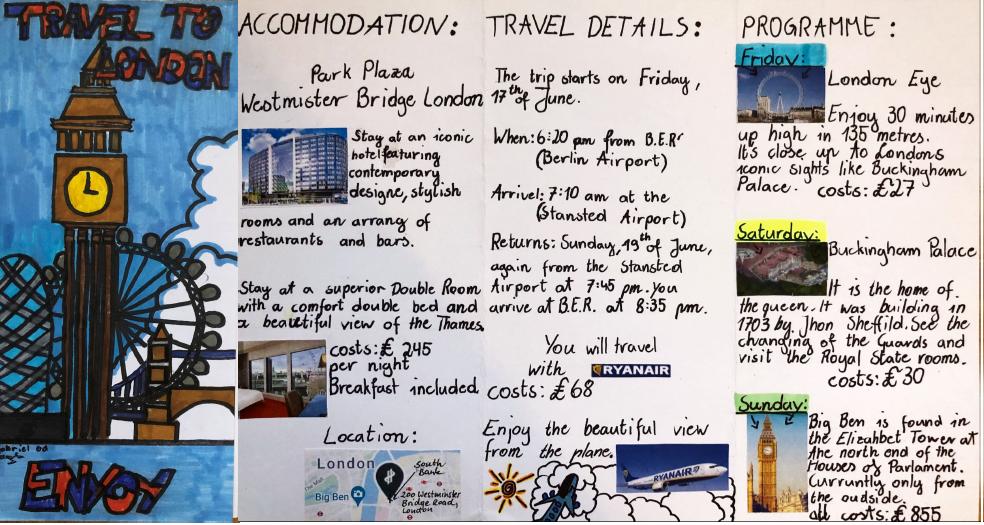 TRAVEL TO
LONDON
ENJOY
ACCOMMODATION:
Park Plaza
Westmister Bridge London
Stay at an iconic
hotel featuring
contemporary
designe, stylish
rooms and an arrang of
restaurants and bars.
Stay at a superior Double Room
with a comfort double bed and
a beautiful view of the Thames.
costs: £ 245
per night
Breakfast included
Location:
London
South
Bank
The Mall
Big Ben
200 Westminster
Bridge Road,
London
TRAVEL DETAILS:
The trip starts on Friday,
17th of June.
When: 6:20 pm from B.E.R
(Berlin Airport)
Arrivel: 7:10 am at the
(Stansted Airport)
Returns: Sunday, 19th of June,
again from the Stansted
Airport at 7:45 pm. you
arrive at B.E.R. at 8:35 pm.
You will travel
with RYANAIR
costs: £68
Enjoy the beautiful view
from the plane.
RYANAIR
PROGRAMME:
Friday:
London Eye
Enjoy 30 minutes
up high in 135 metres.
It's close up to Londons
iconic sights like Buckingham
Palace. costs: £27
Saturday:
Buckingham Palace
It is the home of
the queen. It was building in
1703 by Jhon Sheffild. See the
changing of the Guards and
visit the Royal State rooms.
costs: £30
Sunday:
Big Ben is found in
the Elizahbet Tower at
the north end of the
Houses of Parlament.
Curruntly only from
the oudside.
all costs: £855